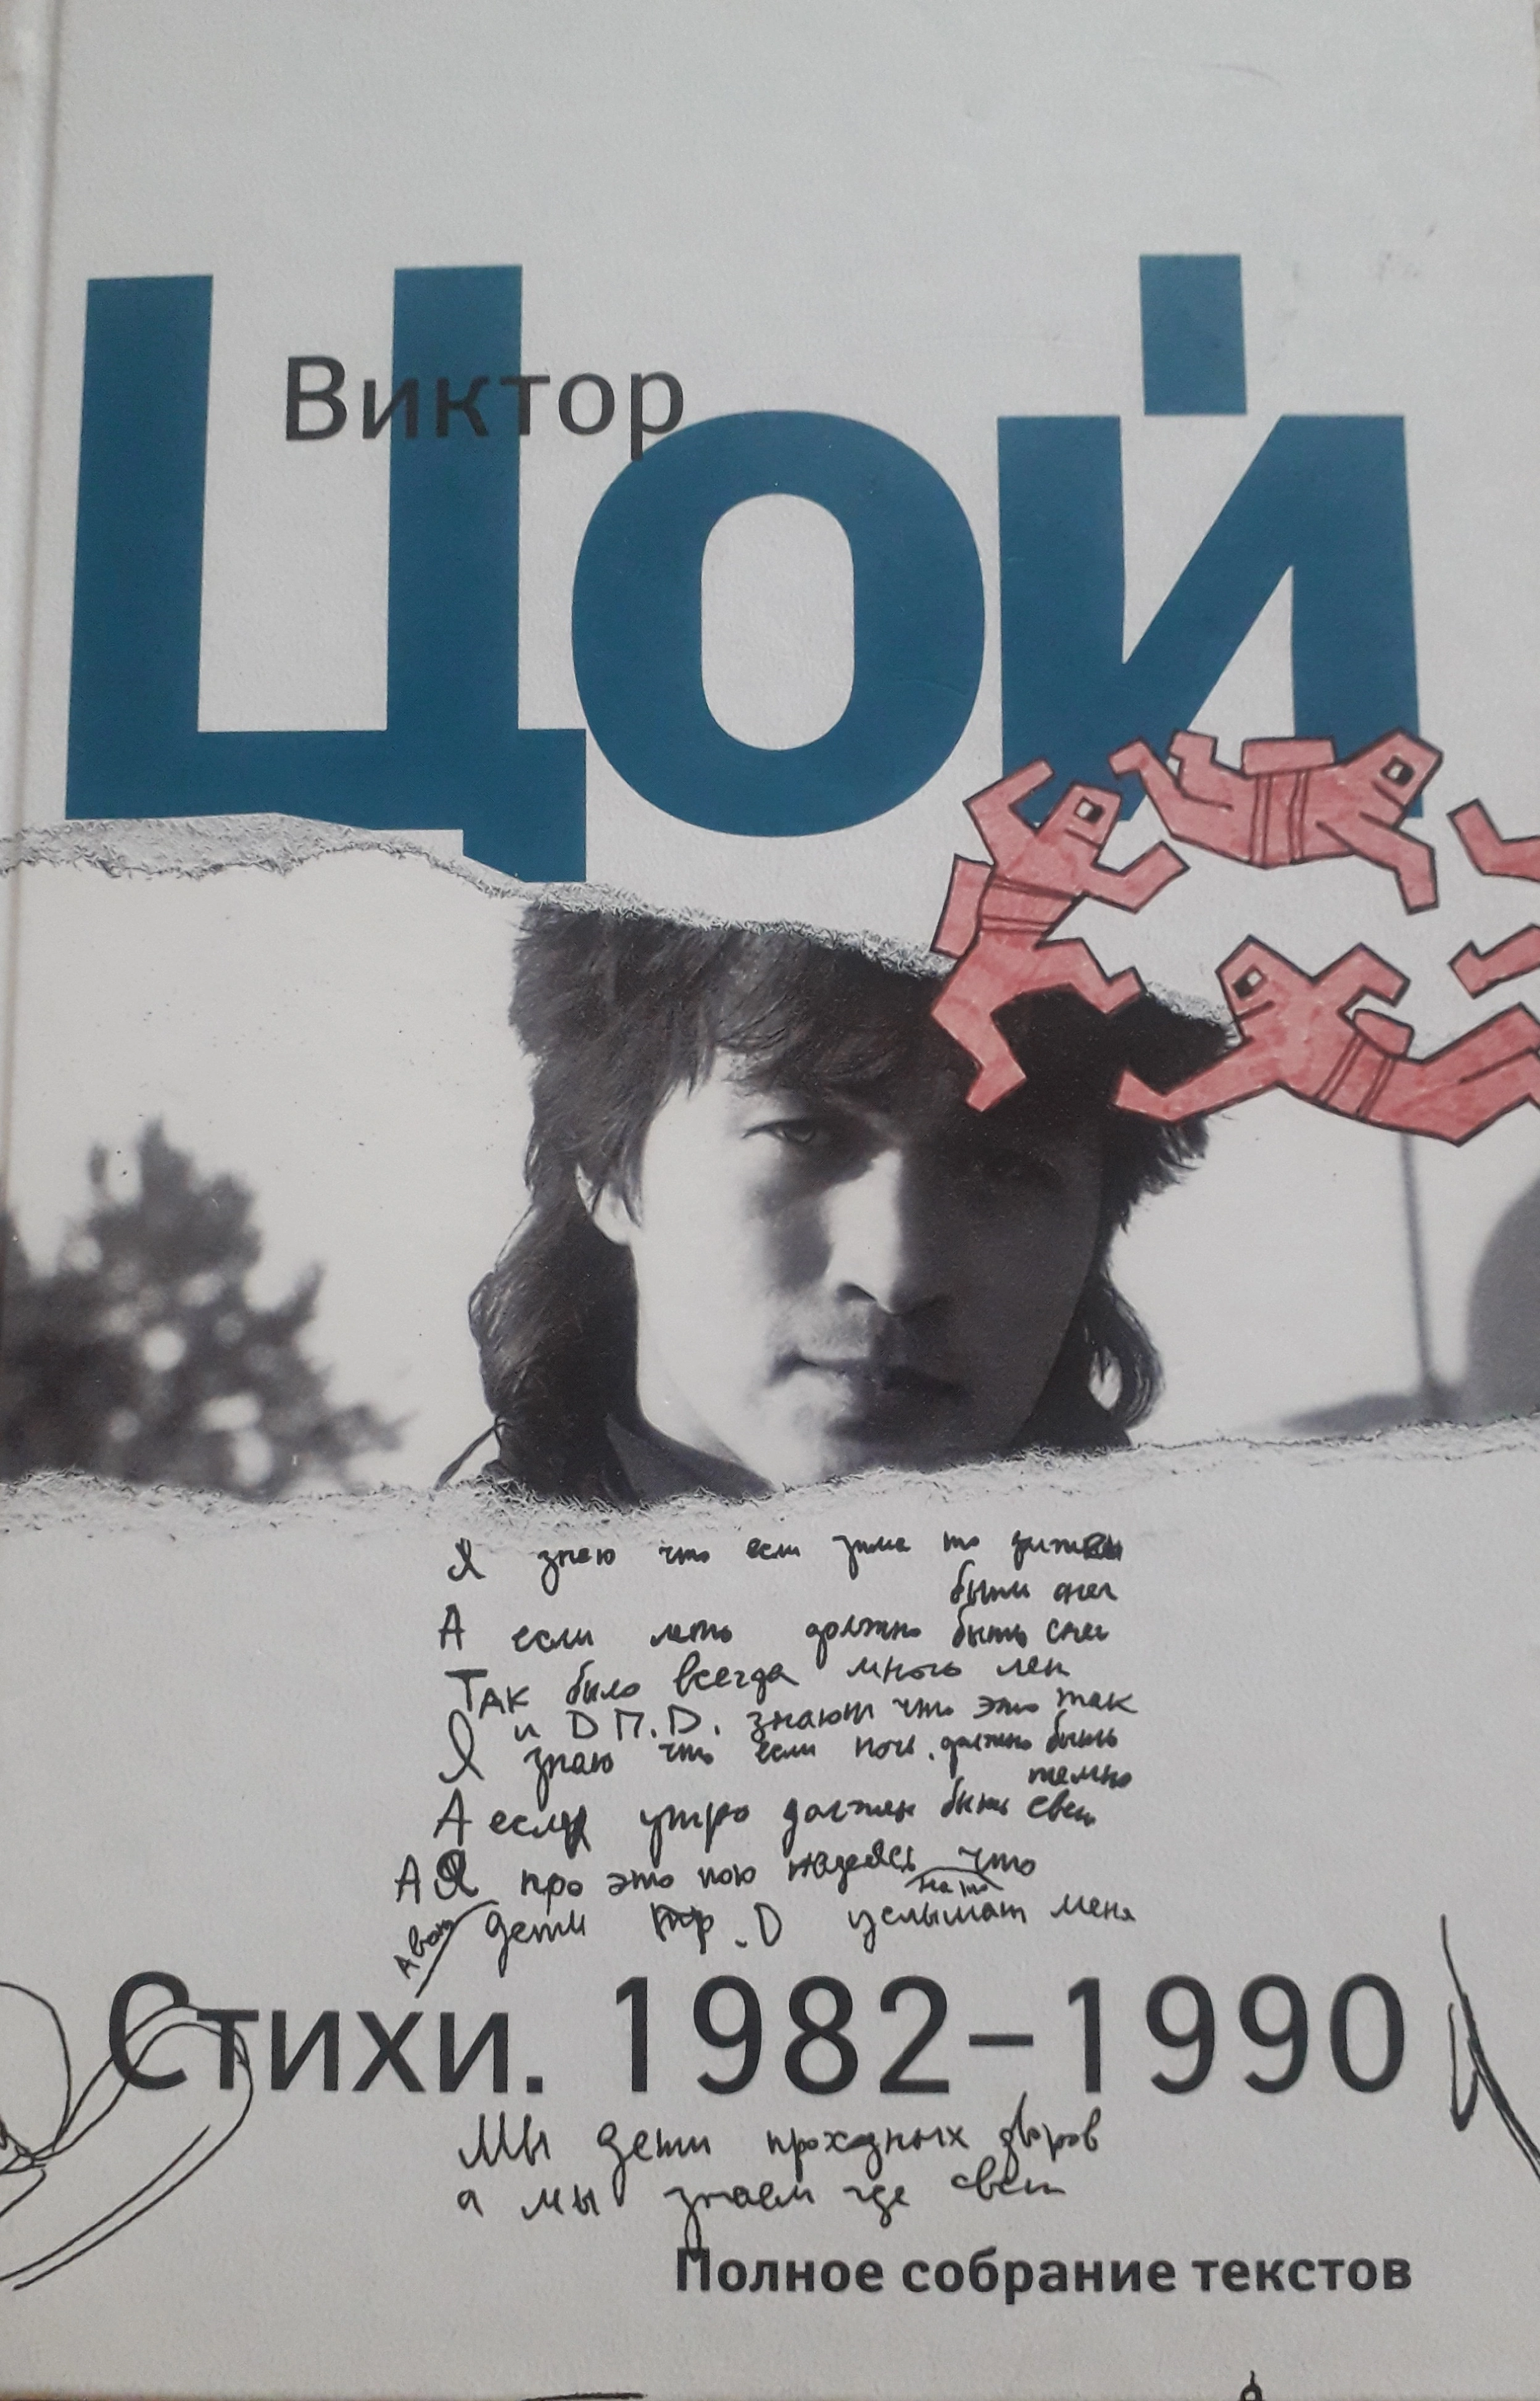 Виктор
Цой
Я знаю что если зима то должен
быть снег
А если лето должно быть
Так было всегда много лет
и Д П. Д. знают что это так
Я знаю что если ночь. должно быть
темно
А если утро должен быть свет
А Я про это пою надеясь что
дети пр. D услышат меня
Стихи. 1982–1990
Мы дети проходных дворов
а мы знаем где свет
Полное собрание текстов